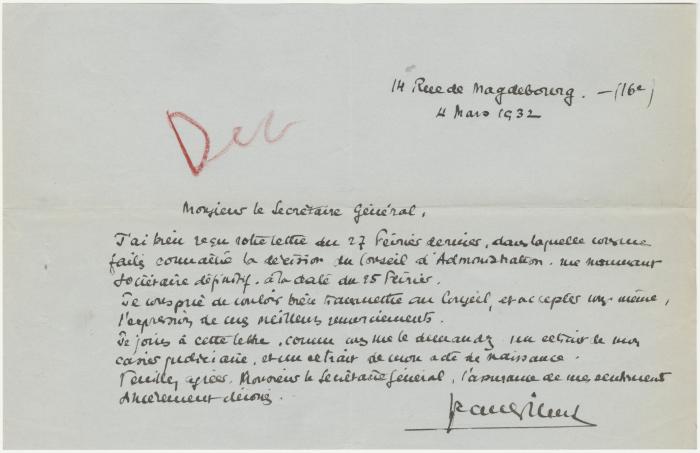 14 Rue de Magdebourg. - (16e)
4 Mars 1932
Monsieur le Secrétaire Général,
J'ai bien reçu votre lettre du 27 Février dernier, dans laquelle vous me
faites connaître la décision du Conseil d'Administration. me nommant
Sociétaire définitif. à la date du 25 Février.
Je vous prie de vouloir bien transmettre au Conseil, et accepter vous-même,
l'expression de mes meilleurs remerciements.
Je joins à cette lettre, comme vous me le demandez un extrait de mon
casier judiciaire, et un extrait de mon acte de naissance.
Veuillez agréer, Monsieur le Secrétaire Général, l'assurance de mes sentiments
sincèrement dévoués.